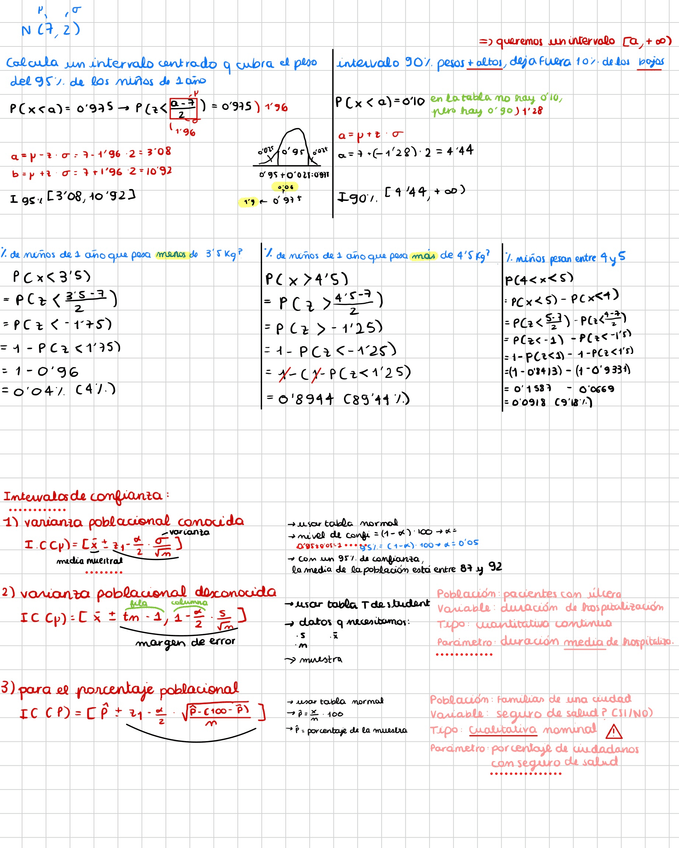 μ, σ
N(7, 2)
=> queremos un intervalo [a, +∞)
Calcula un intervalo centrado q cubra el peso
del 95% de los niños de 1 año
P(x<a) = 0'975 → P(z< a-7/2) = 0'975) 1'96
μ
σ
1'96
a = μ - z · σ = 7 - 1'96 · 2 = 3'08
b = μ + z · σ = 7 + 1'96 · 2 = 10'92
I 95% [3'08, 10'92]
0'025 0'95 0'025
0'95 + 0'025 = 0'975
0'06
1'9 ← 0'975
intervalo 90% pesos + altos, deja fuera 10% de los bajos
P(x<a) = 0'10 en la tabla no hay 0'10,
pero hay 0'90) 1'28
a = μ + z · σ
a = 7 + (-1'28) · 2 = 4'44
I 90% [4'44, +∞)
% de niños de 1 año que pesa menos de 3'5 Kg?
P(x<3'5)
= P(z < 3'5-7/2)
= P(z < -1'75)
= 1 - P(z<1'75)
= 1 - 0'96
= 0'04% (4%)
% de niños de 1 año que pesa más de 4'5 Kg?
P(x>4'5)
= P(z > 4'5-7/2)
= P(z > -1'25)
= 1 - P(z<-1'25)
= 1 - (1 - P(z<1'25)
= 0'8944 (89'44%)
% niños pesan entre 4 y 5
P(4<x<5)
= P(x<5) - P(x<4)
= P(z< 5-7/2) - P(z< 4-7/2)
= P(z<-1) - P(z<-1'5)
= 1 - P(z<1) - 1 - P(z<1'5)
= (1 - 0'8413) - (1 - 0'9331)
= 0'1587 - 0'0669
= 0'0918 (9'18%)
Intervalos de confianza:
1) varianza poblacional conocida
varianza
I.C(μ) = [x̄ ± z1-α/2 · σ/√n]
media muestral
→ usar tabla normal
→ nivel de confi = (1-α) · 100 → α=
95% = (1-α) · 100 → α = 0'05
→ con un 95% de confianza,
la media de la población está entre 87 y 92
2) varianza poblacional desconocida
fila columna
IC(μ) = [x̄ ± tn-1, 1-α/2 · s/√n]
margen de error
→ usar tabla T de student
→ datos q necesitamos:
·s ·x̄
·n
→ muestra
Población: pacientes con úlcera
Variable: duración de hospitalización
Tipo: cuantitativo continuo
Parámetro: duración media de hospitaliza.
3) para el porcentaje poblacional
IC(P) = [p̂ ± z1-α/2 · √p̂·(100-p̂)/n]
→ usar tabla normal
→ p̂ = x/n · 100
→ p̂ = porcentaje de la muestra
Población: Familias de una ciudad
Variable: seguro de salud? (SI/NO)
Tipo: Cualitativo nominal !
Parámetro: porcentaje de ciudadanos
con seguro de salud